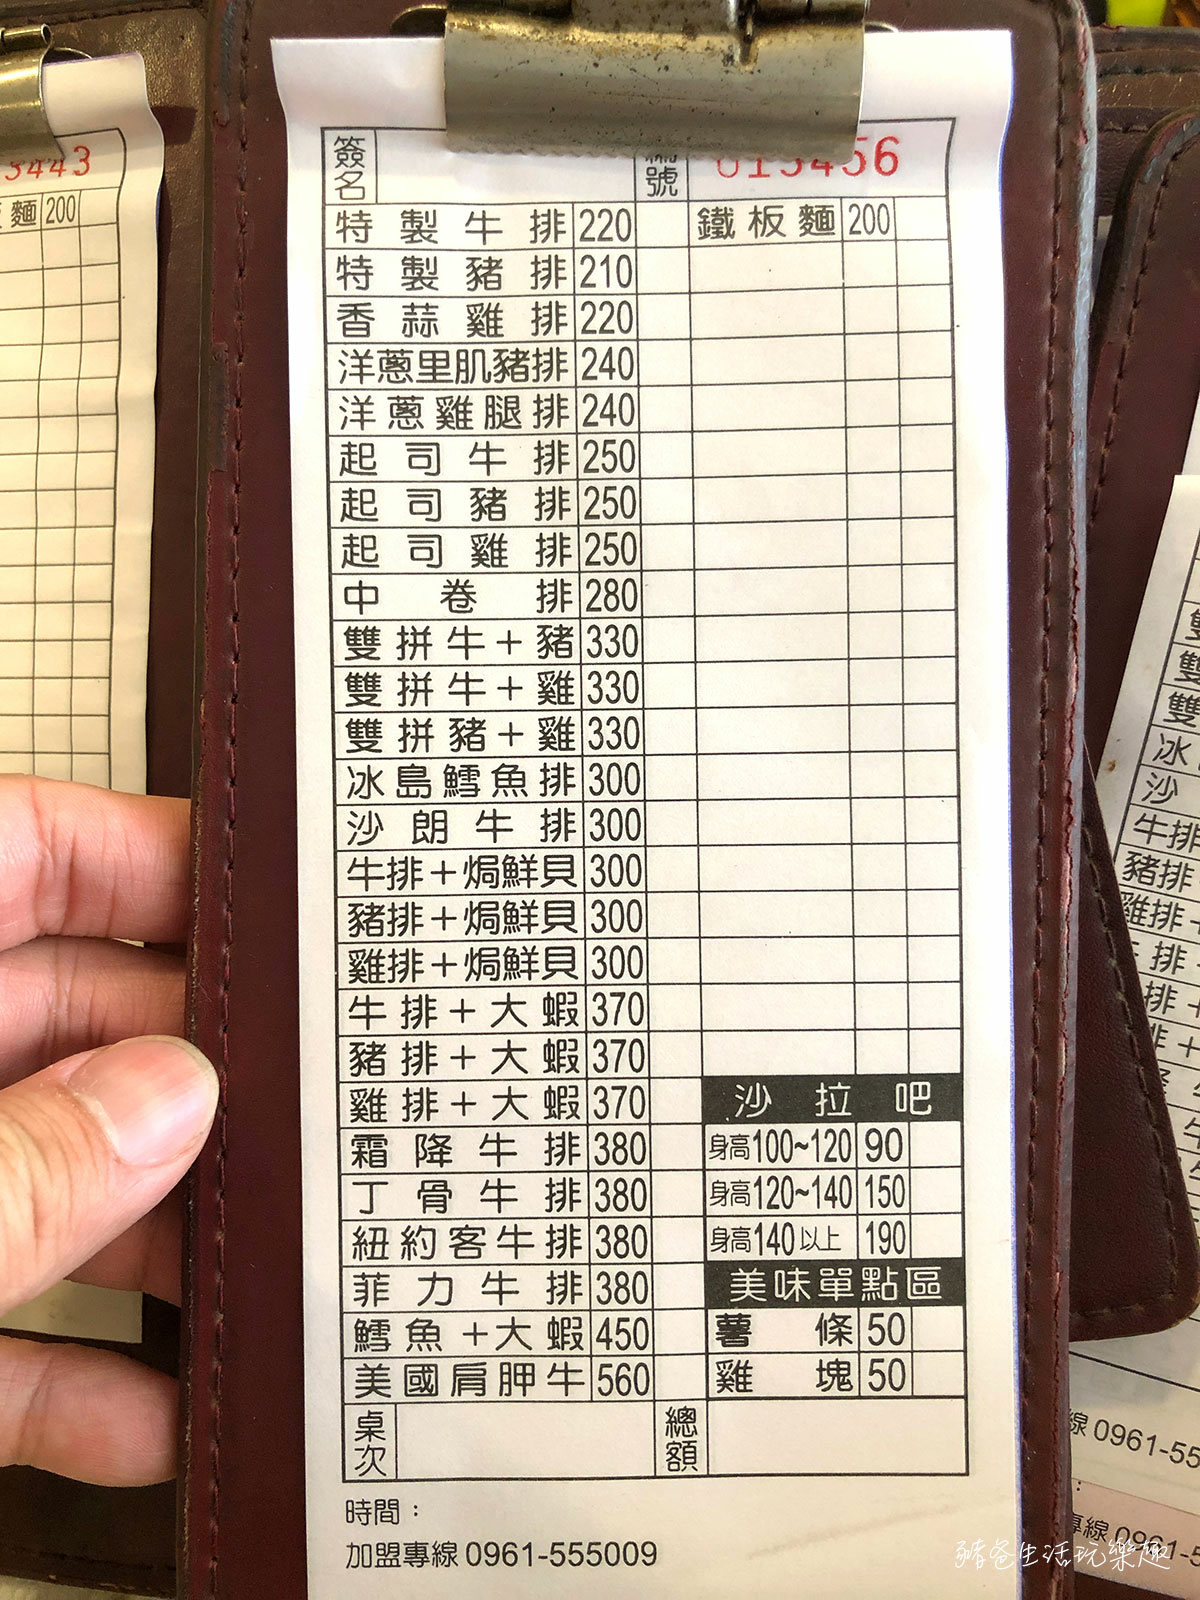 簽名 號 013456
特製牛排 220 鐵板麵 200
特製豬排 210
香蒜雞排 220
洋蔥里肌豬排 240
洋蔥雞腿排 240
起司牛排 250
起司豬排 250
起司雞排 250
中卷排 280
雙拼牛+豬 330
雙拼牛+雞 330
雙拼豬+雞 330
冰島鱈魚排 300
沙朗牛排 300
牛排+焗鮮貝 300
豬排+焗鮮貝 300
雞排+焗鮮貝 300
牛排+大蝦 370
豬排+大蝦 370
雞排+大蝦 370 沙拉吧
霜降牛排 380 身高100~120 90
丁骨牛排 380 身高120~140 150
紐約客牛排 380 身高140以上 190
菲力牛排 380 美味單點區
鱈魚+大蝦 450 薯條 50
美國肩胛牛 560 雞塊 50
桌次 總額
時間：
加盟專線 0961-555009
3443
麵 200
雙
雙
雙
冰
沙
牛排
豬排
雞排+
排
排+
線 0961-55
專線 0961-5
豬爸生活玩樂趣